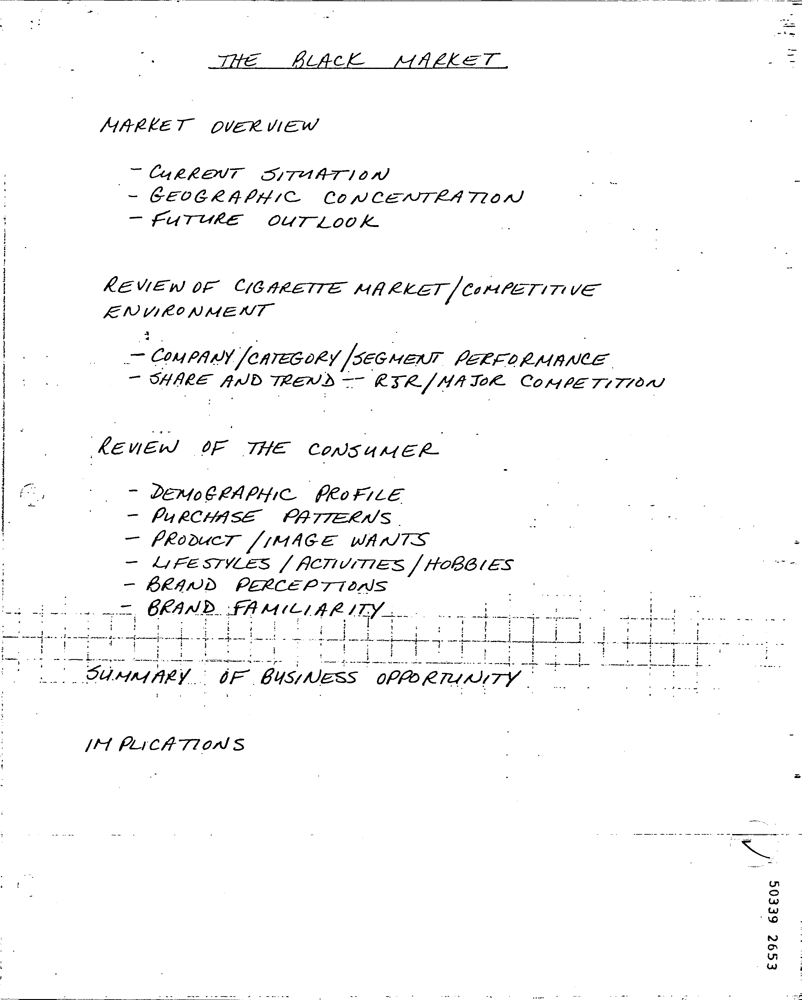 THE BLACK MARKET
MARKET OVERVIEW
- CURRENT SITUATION
- GEOGRAPHIC CONCENTRATION
- FUTURE OUTLOOK
REVIEW OF CIGARETTE MARKET/COMPETITIVE
ENVIRONMENT
- COMPANY/CATEGORY/SEGMENT PERFORMANCE
- SHARE AND TREND -- RJR/MAJOR COMPETITION
REVIEW OF THE CONSUMER
- DEMOGRAPHIC PROFILE
- PURCHASE PATTERNS
- PRODUCT/IMAGE WANTS
- LIFESTYLES/ACTIVITIES/HOBBIES
- BRAND PERCEPTIONS
- BRAND FAMILIARITY
SUMMARY OF BUSINESS OPPORTUNITY
IMPLICATIONS
50339 2653